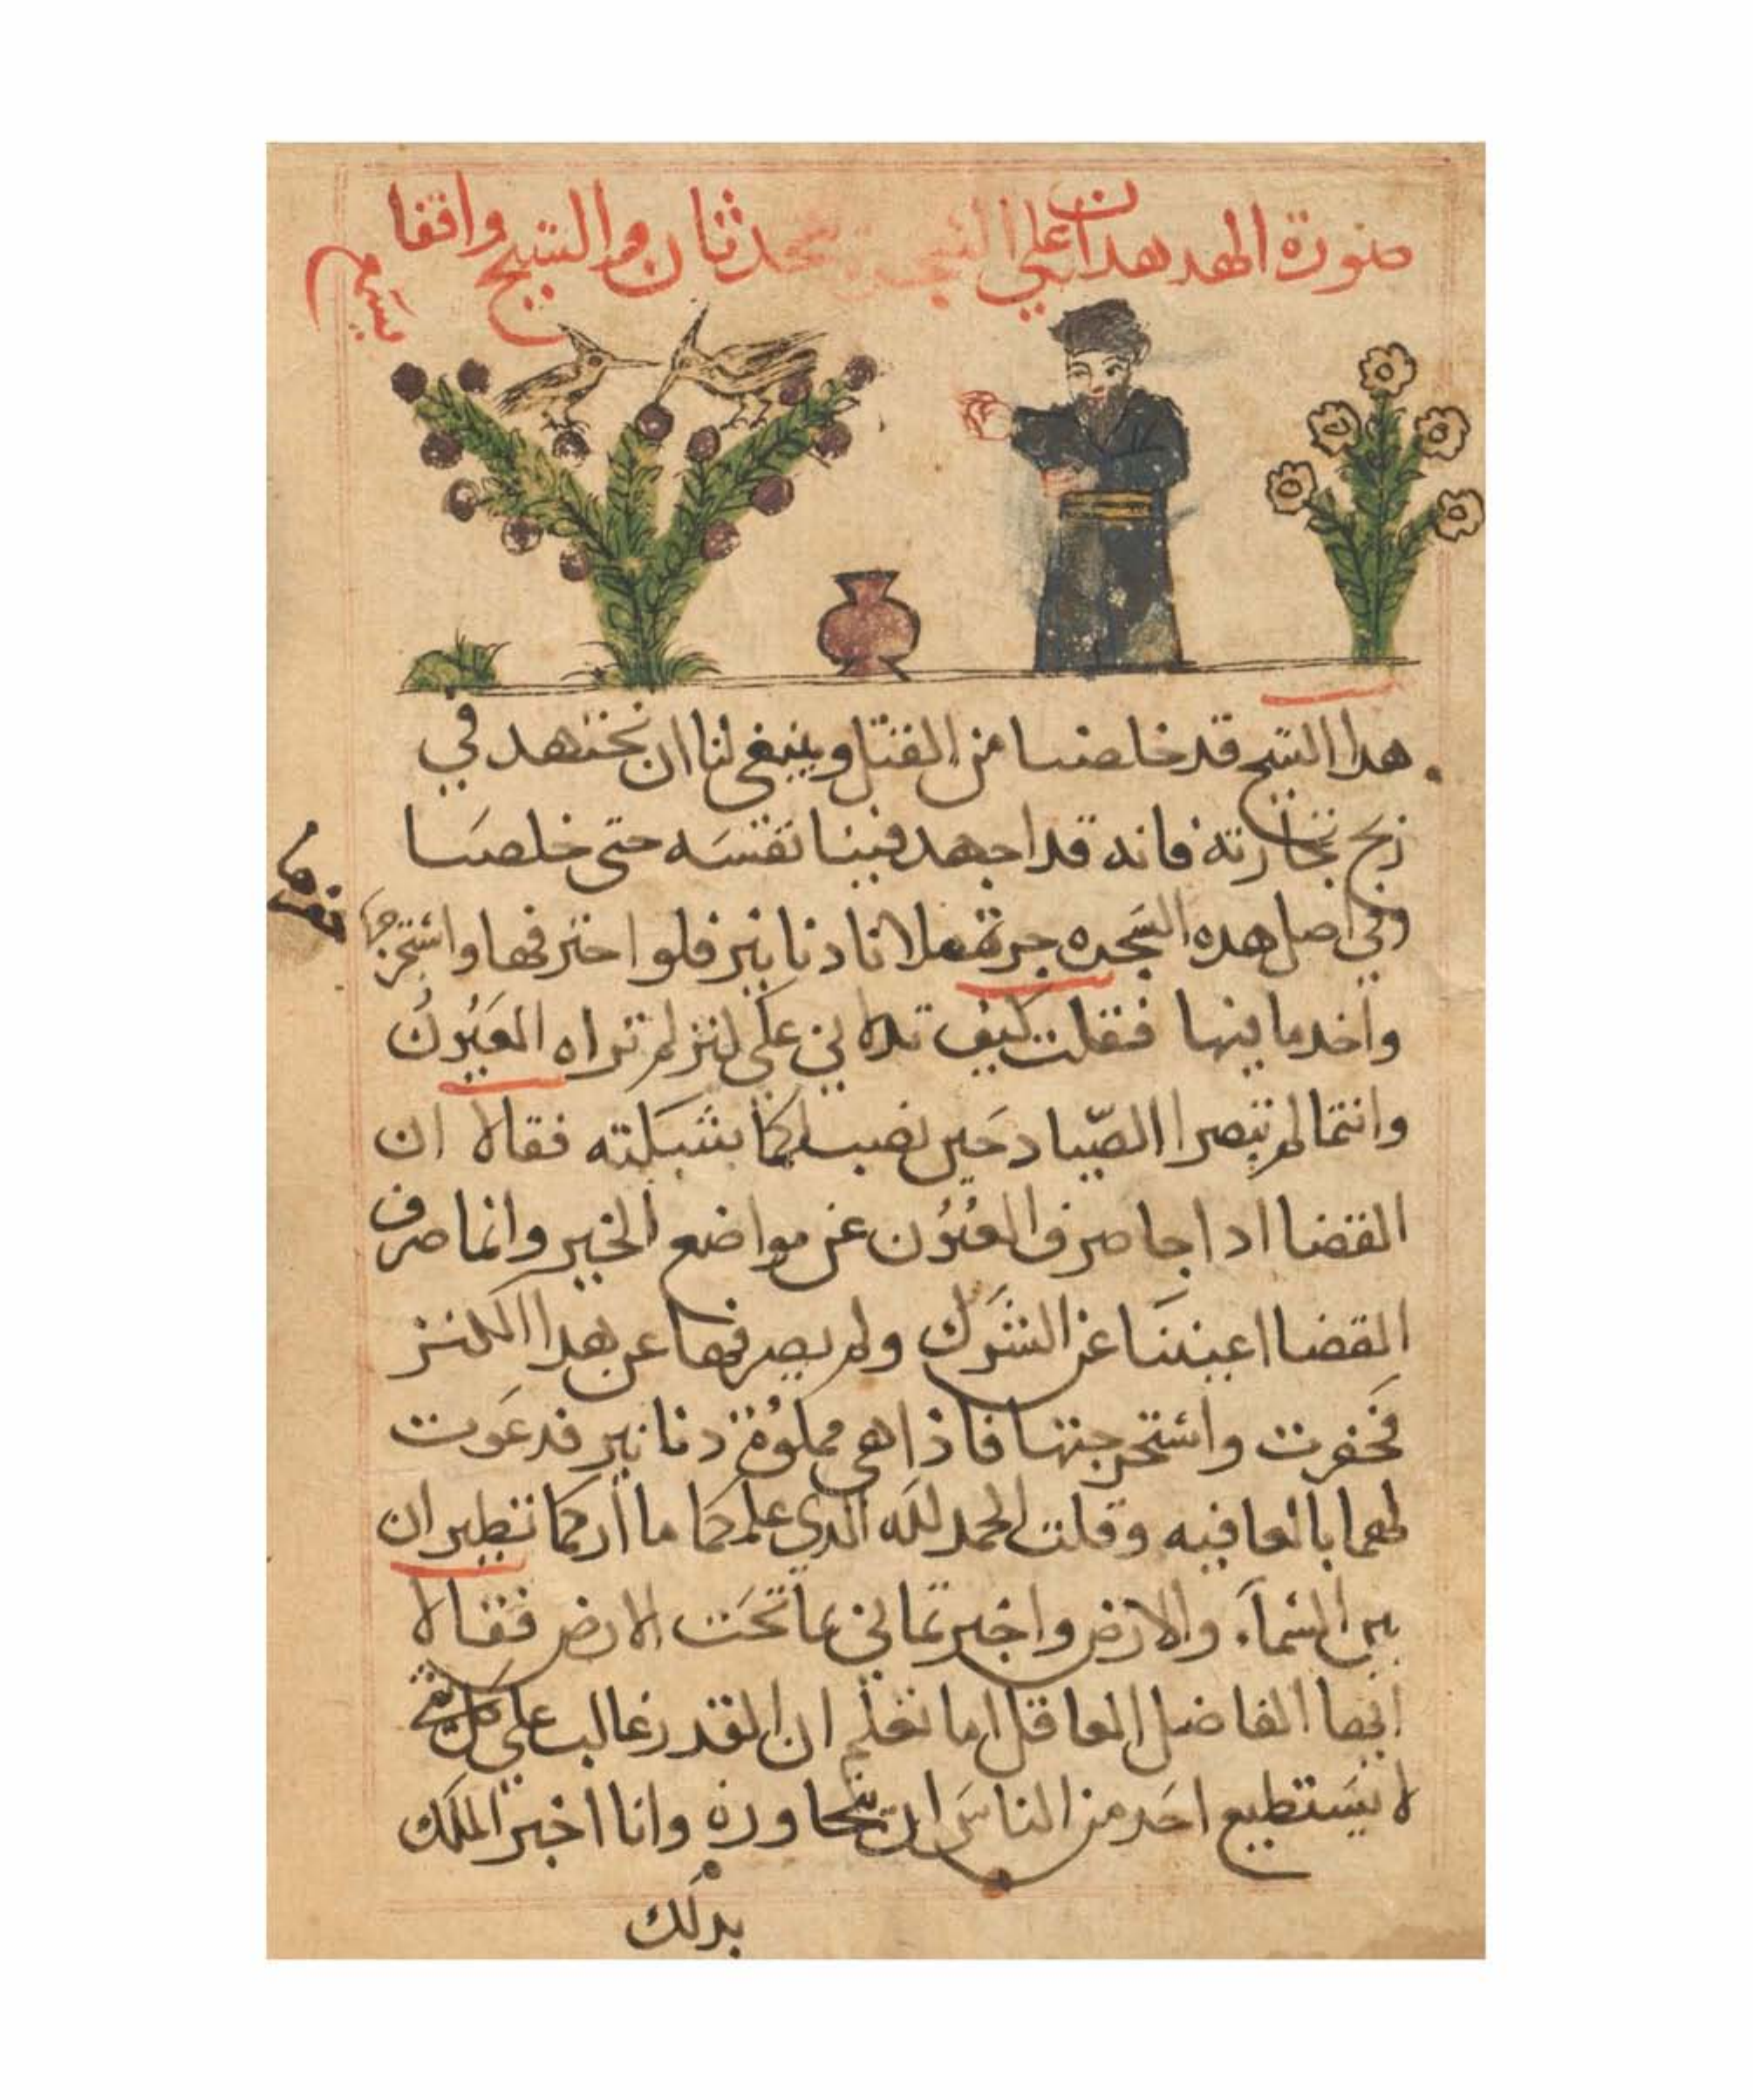 صورة الهدهدان على الشجرة يتحدثان والشيخ واقفا
يسمع
هدا الشيخ قد خلصنا من القتل وينبغي لنا ان نجتهد في
ربح تجارته فانه قد اجهد فينا نفسه حتى خلصنا
وفي اصل هده الشجره جرة ملانا دنانير فلو احترفها واستخرجها
واخد ما فيها فقلت كيف تدلاني على كنز لم تراه العيون
وانتما لم تبصرا الصياد حين نصب لكما بشبكته فقالا ان
القضا ادا جا صرف العيون عن مواضع الخير وانما صرف
القضا اعيننا عن الشرك ولم يصرفها عن هدا الكنز
فحفرت واستخرجتها فاذا هي مملوة دنانير فدعوت
لهما بالعافيه وقلت الحمد لله الدي علمكما ما اركما تطيران
بين السمآء والارض واخبرتماني بما تحت الارض فقالا
ايها الفاضل العاقل اما تعلم ان القدر غالب على كل شي
لا يستطيع احد من الناس ان يتجاوزه وانا اخبر الملك
بدلك